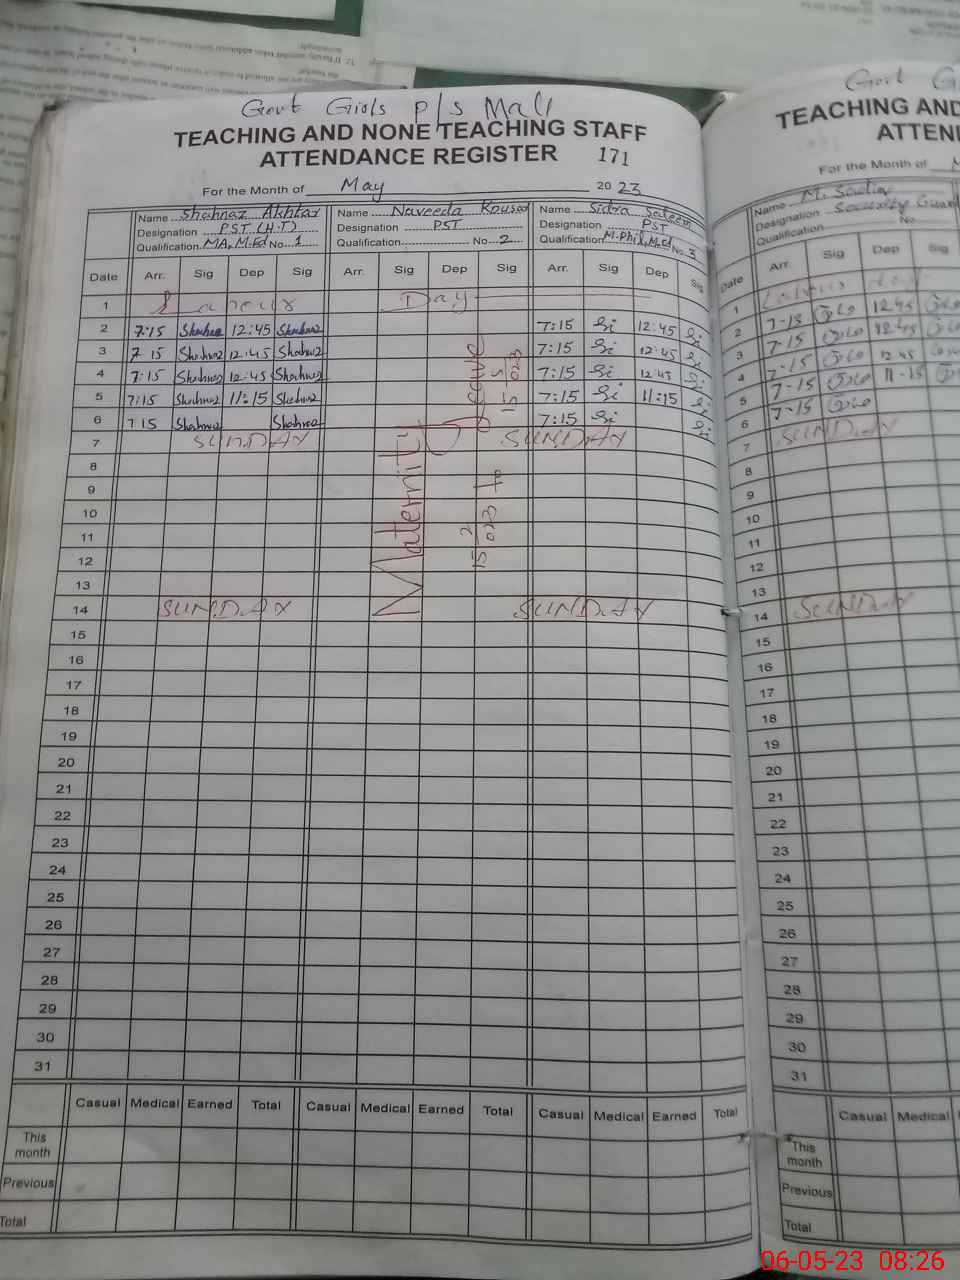 Govt Girls P/S Mall
TEACHING AND NONE TEACHING STAFF
ATTENDANCE REGISTER 171
For the Month of May 2023
Name Shahnaz Akhtar Name Naveeda Kousar Name Sidra Saleem
Designation PST (H.T) Designation PST Designation PST
Qualification MA, M.Ed No. 1 Qualification No. 2 Qualification M.Phil, M.Ed No. 3
Date Arr. Sig Dep Sig Arr. Sig Dep Sig Arr. Sig Dep Sig
1 Labour Day
2 7:15 Shahnaz 12:45 Shahnaz 7:15 Si 12:45 Si
3 7 15 Shahnaz 12:45 Shahnaz 7:15 Si 12:45 Si
4 7:15 Shahnaz 12:45 Shahnaz 7:15 Si 12:45 Si
5 7:15 Shahnaz 11:15 Shahnaz 7:15 Si 11:15 Si
6 7 15 Shahnaz Shahnaz 7:15 Si Si
7 SUNDAY SUNDAY
8
9
10
11
12
13
14 SUNDAY SUNDAY
15
16
17
18
19
20
21
22
23
24
25
26
27
28
29
30
31
Maternity Leave
15 2 023 to 15 5 023
Casual Medical Earned Total Casual Medical Earned Total Casual Medical Earned Total
This month
Previous
Total
Govt G
TEACHING AND
ATTEN
For the Month of
Name
Designation Security Guard
Qualification No.
Date Arr. Sig Dep Sig
1
2 7-15 12 45
3 7-15 12 45
4 7-15 12 45
5 7-15 11-15
6 7-15
7 SUNDAY
8
9
10
11
12
13
14 SUNDAY
15
16
17
18
19
20
21
22
23
24
25
26
27
28
29
30
31
Casual Medical
This month
Previous
Total
06-05-23 08:26